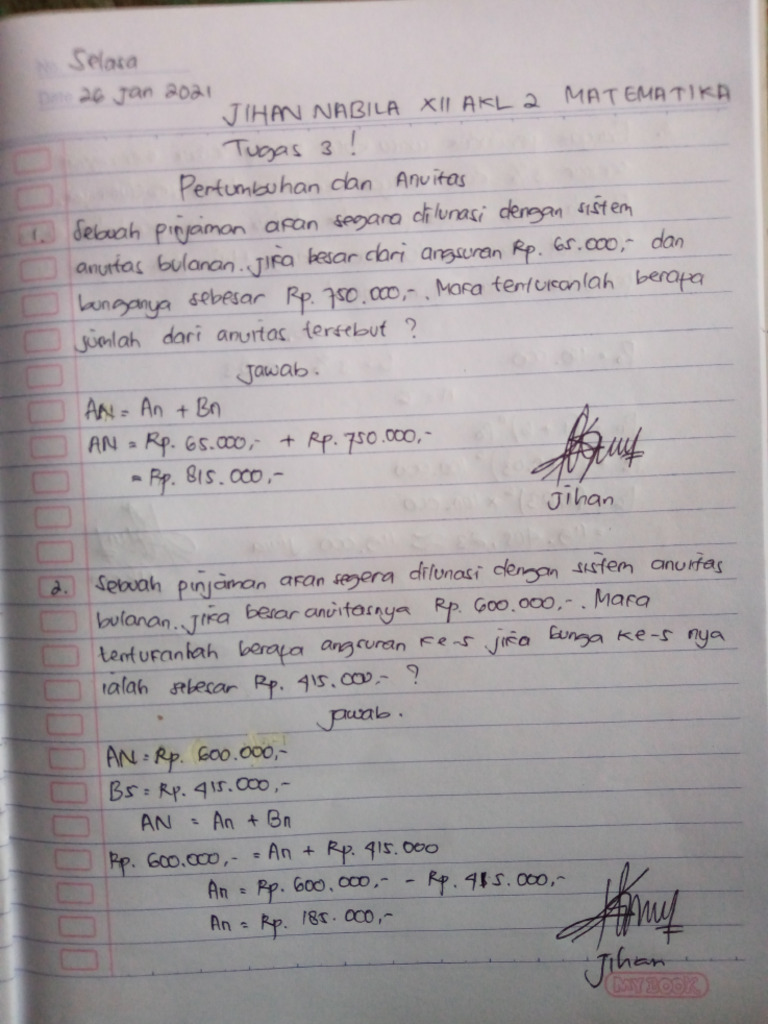 No. Selasa
Date 26 Jan 2021
JIHAN NABILA XII AKL 2 MATEMATIKA
Tugas 3!
Pertumbuhan dan Anuitas
1. Sebuah pinjaman akan segara dilunasi dengan sistem
anuitas bulanan. Jika besar dari angsuran Rp. 65.000,- dan
bunganya sebesar Rp. 750.000,-. Maka tentukanlah berapa
jumlah dari anuitas tersebut ?
Jawab.
AN = An + Bn
AN = Rp. 65.000,- + Rp. 750.000,-
= Rp. 815.000,-
Jihan
2. Sebuah pinjaman akan segera dilunasi dengan sistem anuitas
bulanan. Jika besar anuitasnya Rp. 600.000,-. Maka
tentukanlah berapa angsuran ke-5 jika bunga ke-5 nya
ialah sebesar Rp. 415.000,- ?
Jawab.
AN = Rp. 600.000,-
B5 = Rp. 415.000,-
AN = An + Bn
Rp. 600.000,- = An + Rp. 415.000
An = Rp. 600.000,- - Rp. 415.000,-
An = Rp. 185.000,-
Jihan
MY BOOK